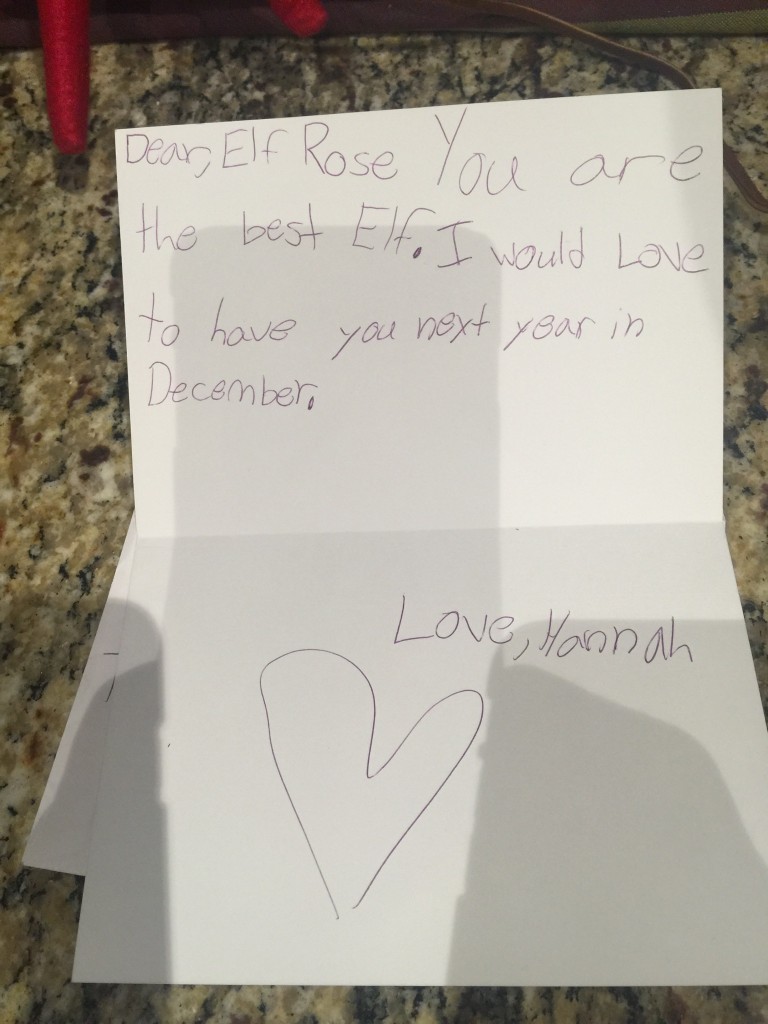 Dear, Elf Rose You are
the best Elf. I would Love
to have you next year in
December.
Love, Hannah